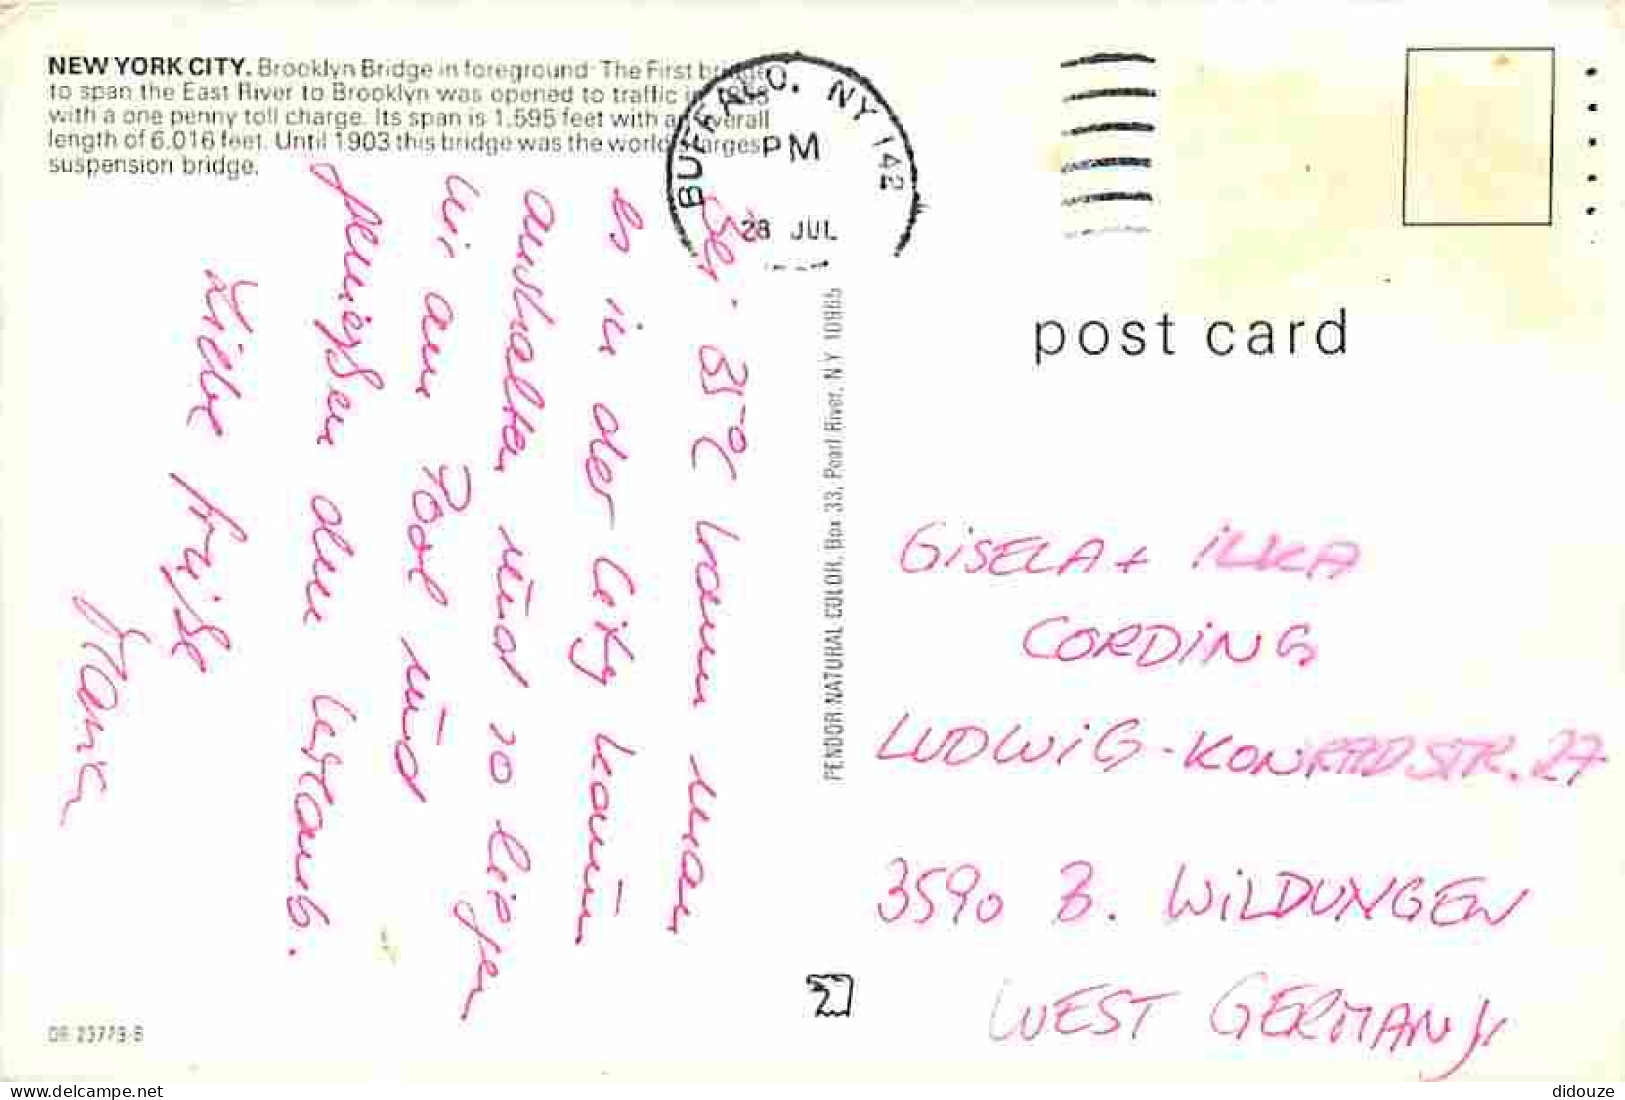 NEW YORK CITY. Brooklyn Bridge in foreground. The First bridge
to span the East River to Brooklyn was opened to traffic in 1883
with a one penny toll charge. Its span is 1,595 feet with an overall
length of 6,016 feet. Until 1903 this bridge was the world's largest
suspension bridge.
BUFFALO, NY 142
PM
28 JUL
post card
Bei 35°C kann man
es in der City kaum
aushalten und so liegen
wir am Pool und
genießen den Urlaub.
Liebe Grüße
PENDOR NATURAL COLOR, Box 33, Pearl River, N.Y. 10965
GISELA + ILKA
CORDING
LUDWIG-KONRADSTR. 27
3590 B. WILDUNGEN
WEST GERMANY
DR 23773-B
didouze